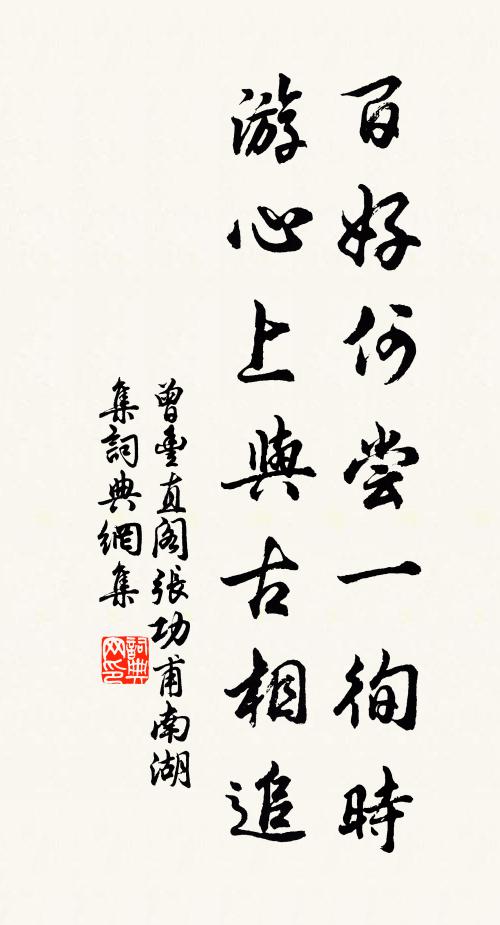 百好何尝一徇時
游心上與古相追
曾豐直閣張功甫南湖
集詞典網集
詞典网印